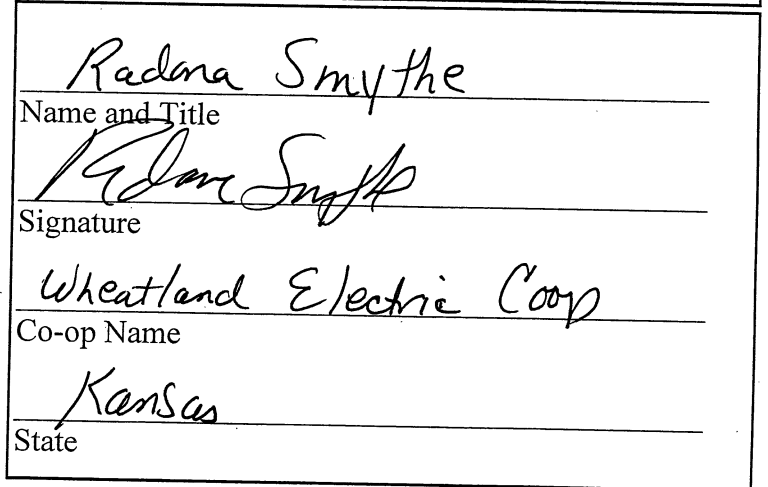 Radona Smythe
Name and Title
Signature
Wheatland Electric Coop
Co-op Name
Kansas
State